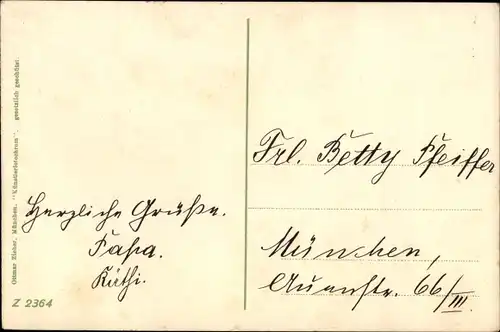 Ottmar Zieher, München. "Künstlerlochrom". gesetzlich geschützt.
Herzliche Grüße.
Papa.
Käthi.
Z 2364
Frl. Betty Pfeiffer
München,
Auenstr. 66/III